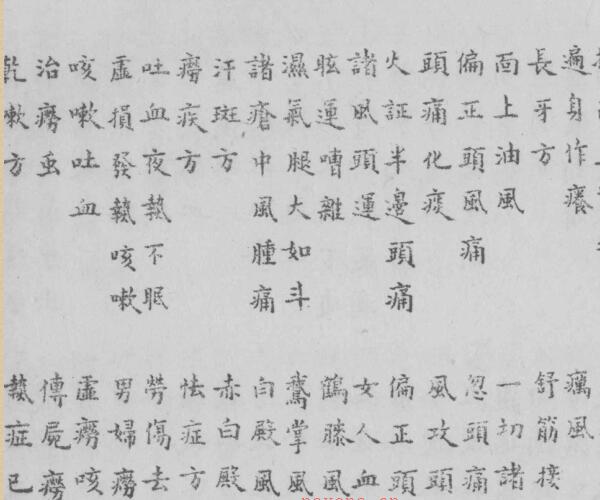 遍身作癢
長牙方
面上油風
偏正頭風痛
頭痛化痰
火証半邊頭痛
諸風頭運
眩運嘈雜
濕氣腿大如斗
諸瘡中風腫痛
汗斑方
癆疾方
吐血夜熱不眠
虛損發熱咳嗽
咳嗽吐血
治癆虫
乾嗽方
癘風
舒筋接
一切諸
忽頭痛
風攻頭
偏正頭
女人血
鶴膝風
鵞掌風
白殿風
赤白殿
怯症方
勞傷去
男婦癆
虛癆咳
傳屍癆
熱症已